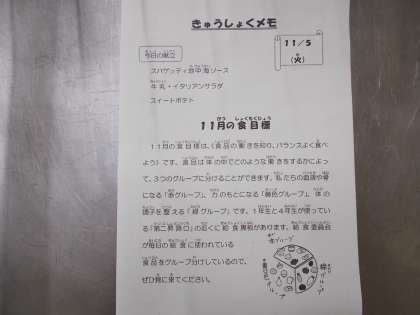 きゅうしょくメモ
11/5
(火)
今日の献立
スパゲッティ地中海ソース
牛乳・イタリアンサラダ
スイートポテト
11月の食目標
11月の食目標は、《食品の働きを知り、バランスよく食べ
よう》です。食品は体の中でどのような働きをするかによっ
て、3つのグループに分けることができます。私たちの血液や骨
になる「赤グループ」、力のもとになる「黄色グループ」、体の
調子を整える「緑グループ」です。1年生と4年生が使ってい
る「第二昇降口」の近くに給食黒板があります。給食委員会
が毎日の給食に使われている
食品をグループ分けしているので、
ぜひ見に来てください。
赤グループ
緑グループ
黄色グループ